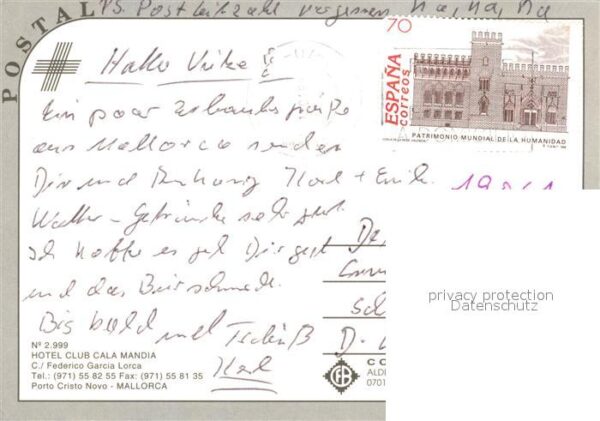 PS. Postleitzahl vergessen ha, ha, ha
POSTAL
70
ESPAÑA
correos
PATRIMONIO MUNDIAL DE LA HUMANIDAD
Hallo
Ein paar Urlaubsgrüße
aus Mallorca senden
Dir und Anhang Karl +
Wetter - Getränke sehr gut.
Ich hoffe es geht Dir gut
und das Bier schmeckt.
Bis bald und Tschüß
Karl
De
Sch
D-
privacy protection
Datenschutz
Nº 2.999
HOTEL CLUB CALA MANDIA
C./ Federico García Lorca
Tel.: (971) 55 82 55 Fax: (971) 55 81 35
Porto Cristo Novo - MALLORCA
CO
ALD
0701